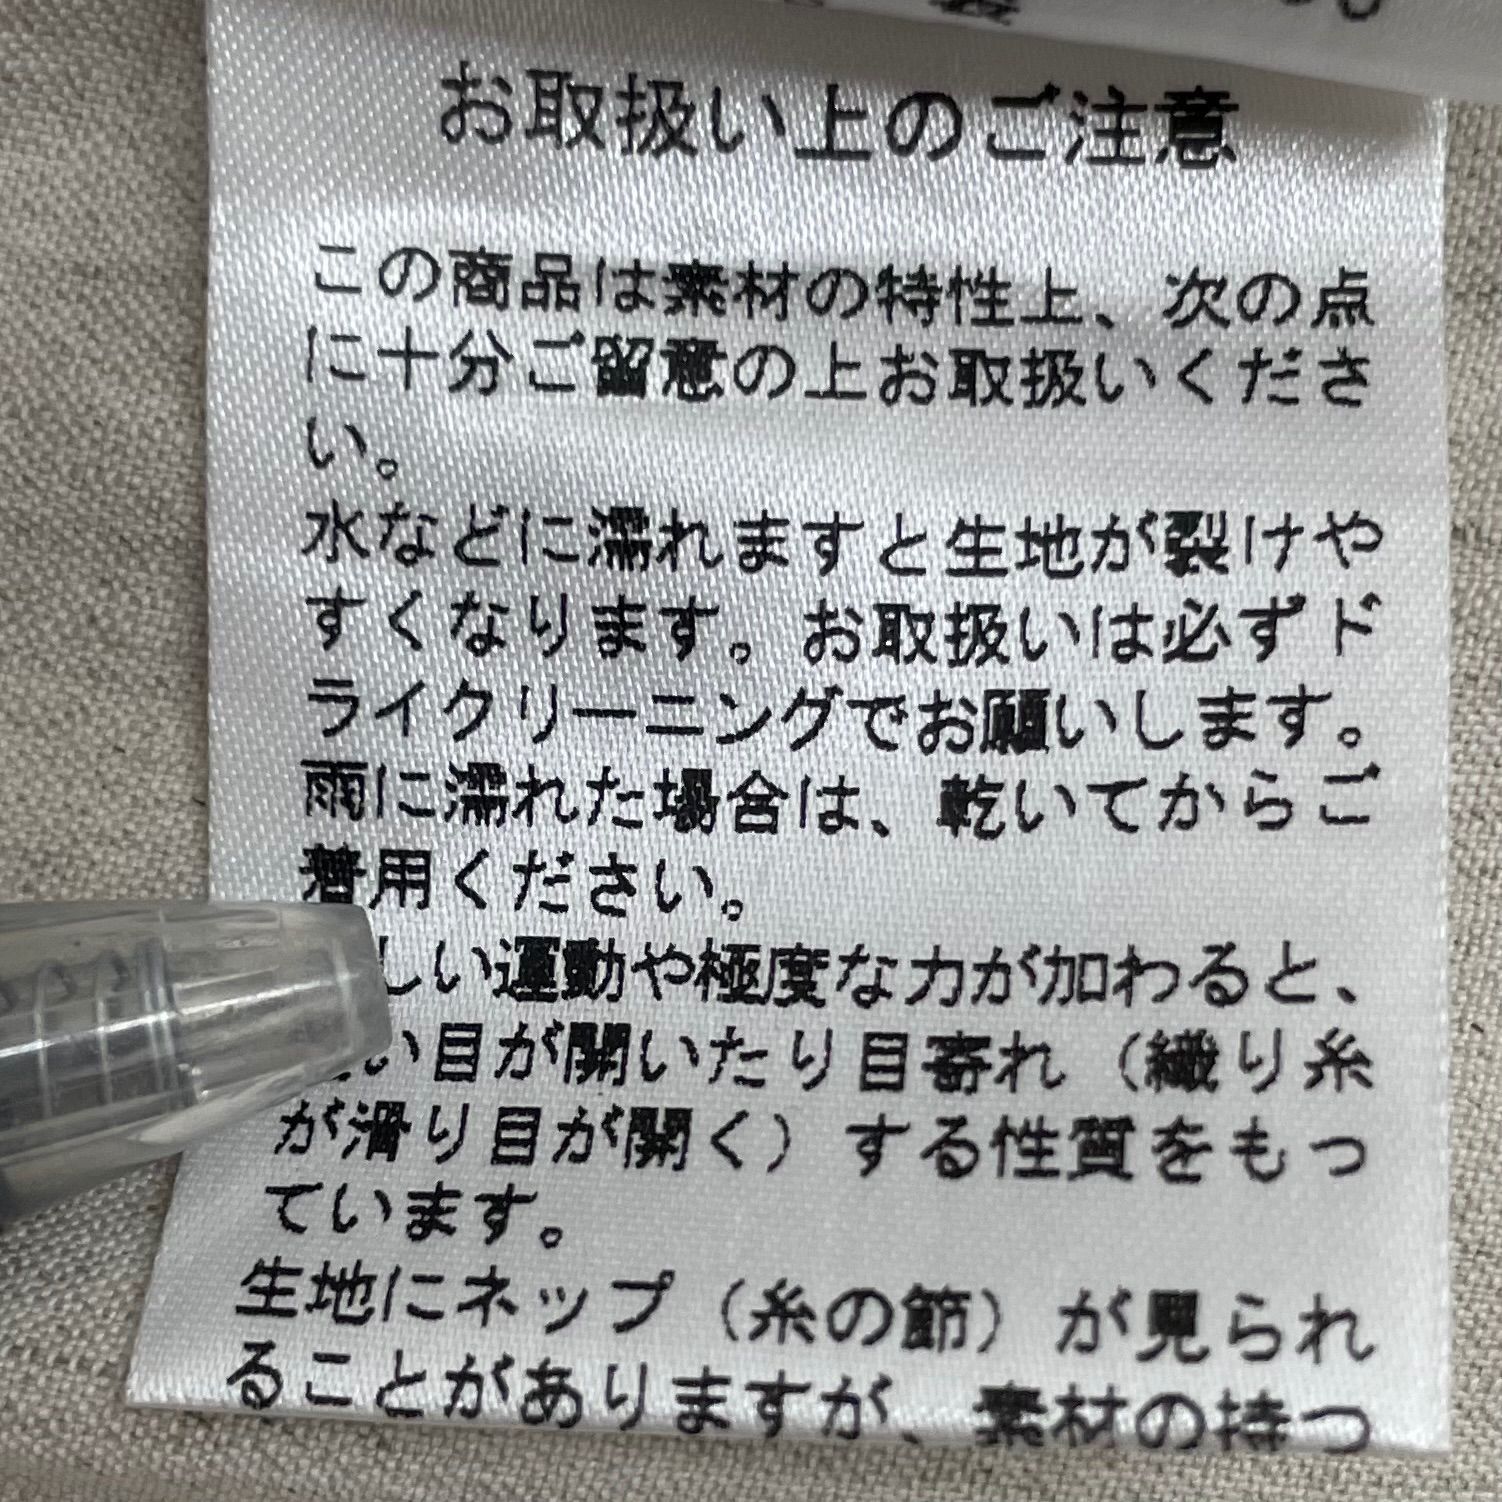 お取扱い上のご注意
この商品は素材の特性上、次の点
に十分ご留意の上お取扱いくださ
い。
水などに濡れますと生地が裂けや
すくなります。お取扱いは必ずド
ライクリーニングでお願いします。
雨に濡れた場合は、乾いてからご
着用ください。
しい運動や極度な力が加わると、
い目が開いたり目寄れ（織り糸
が滑り目が開く）する性質をもっ
ています。
生地にネップ（糸の節）が見られ
ることがありますが、素材の持つ